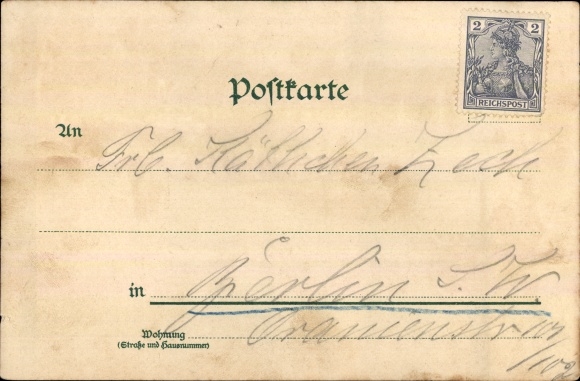 2 2
REICHSPOST
Postkarte
An Frl. Käthchen Zech
in Berlin S. W.
Wohnung Oranienstr. 101
(Straße und Hausnummer)